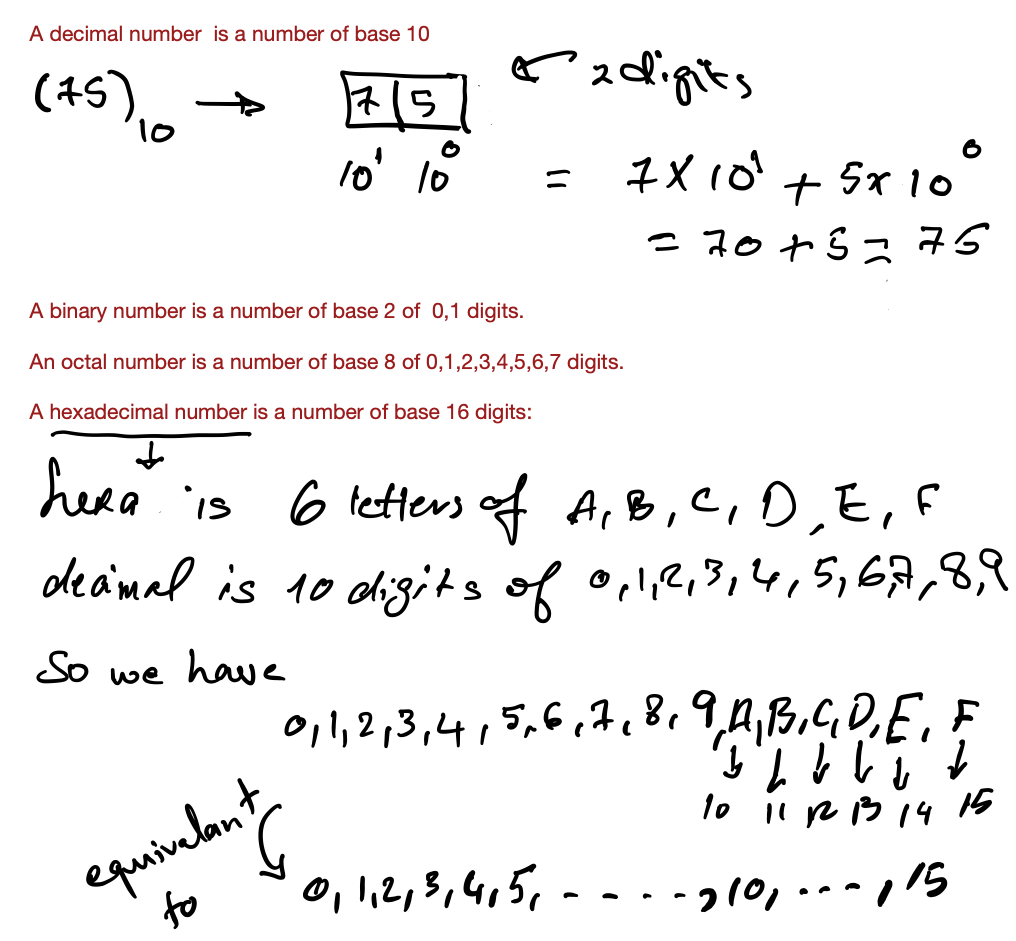 A decimal number is a number of base 10
(75)10 → 7 5 ← 2 digits
10¹ 10⁰ = 7 x 10¹ + 5 x 10⁰
= 70 + 5 = 75
A binary number is a number of base 2 of 0,1 digits.
An octal number is a number of base 8 of 0,1,2,3,4,5,6,7 digits.
A hexadecimal number is a number of base 16 digits:
hexa is 6 letters of A, B, C, D, E, F
decimal is 10 digits of 0,1,2,3,4,5,6,7,8,9
So we have
0,1,2,3,4,5,6,7,8,9,A,B,C,D,E,F
10 11 12 13 14 15
equivalant
to
0,1,2,3,4,5, - - - - -, 10, - - - -, 15